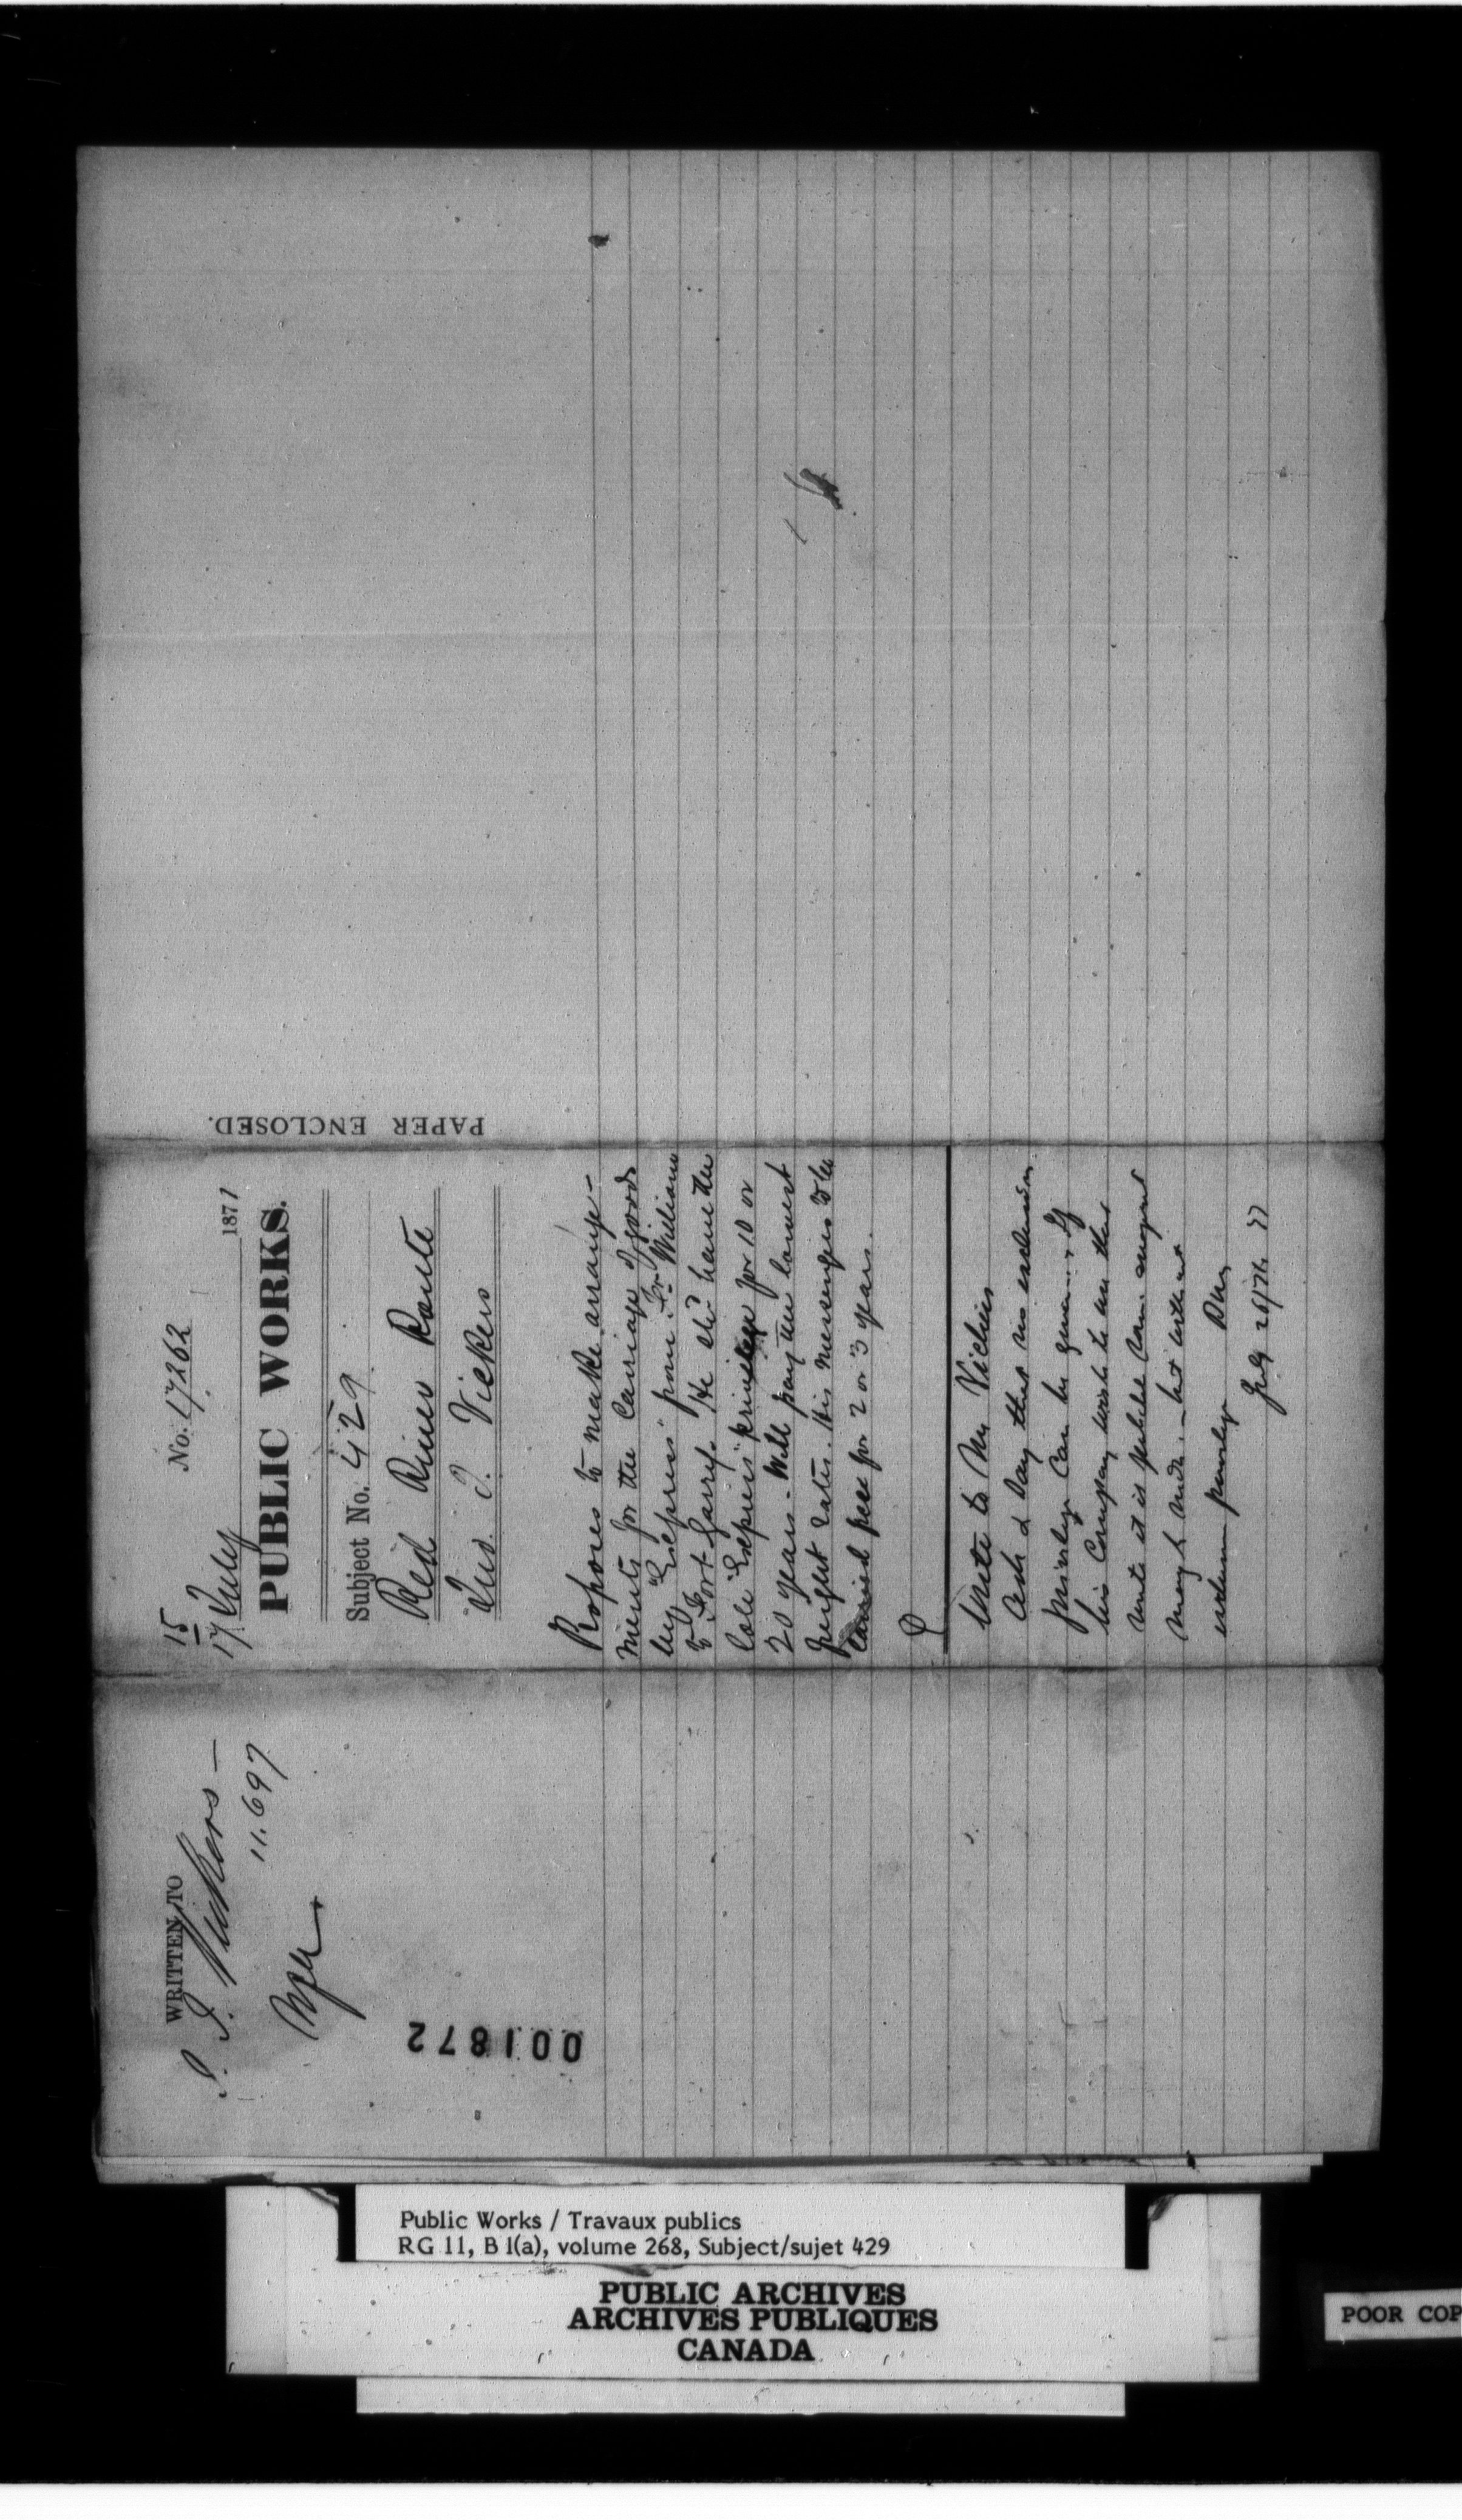 WRITTEN TO
J. J. Vickers —
11.697
001872
No. 17262
15
17 July 1871
PUBLIC WORKS.
Subject No. 429
Red River Route
Jno. J. Vickers
Proposes to make arrange-
ments for the carriage of goods
by "Express" from Ft. William
to Fort Garry. He shd have the
sole "Express" privilege for 10 or
20 years. Will pay the lowest
freight rates. His messengers to be
carried free for 2 or 3 years.
Write to Mr Vickers
and say that no exclusive
privilege can be given. If
his Company wish to use the
route it is probable some arrangement
may be made, but without
exclusive privilege
July 26/71
PAPER ENCLOSED.
Public Works / Travaux publics
RG 11, B 1(a), volume 268, Subject/sujet 429
PUBLIC ARCHIVES
ARCHIVES PUBLIQUES
CANADA
POOR COP